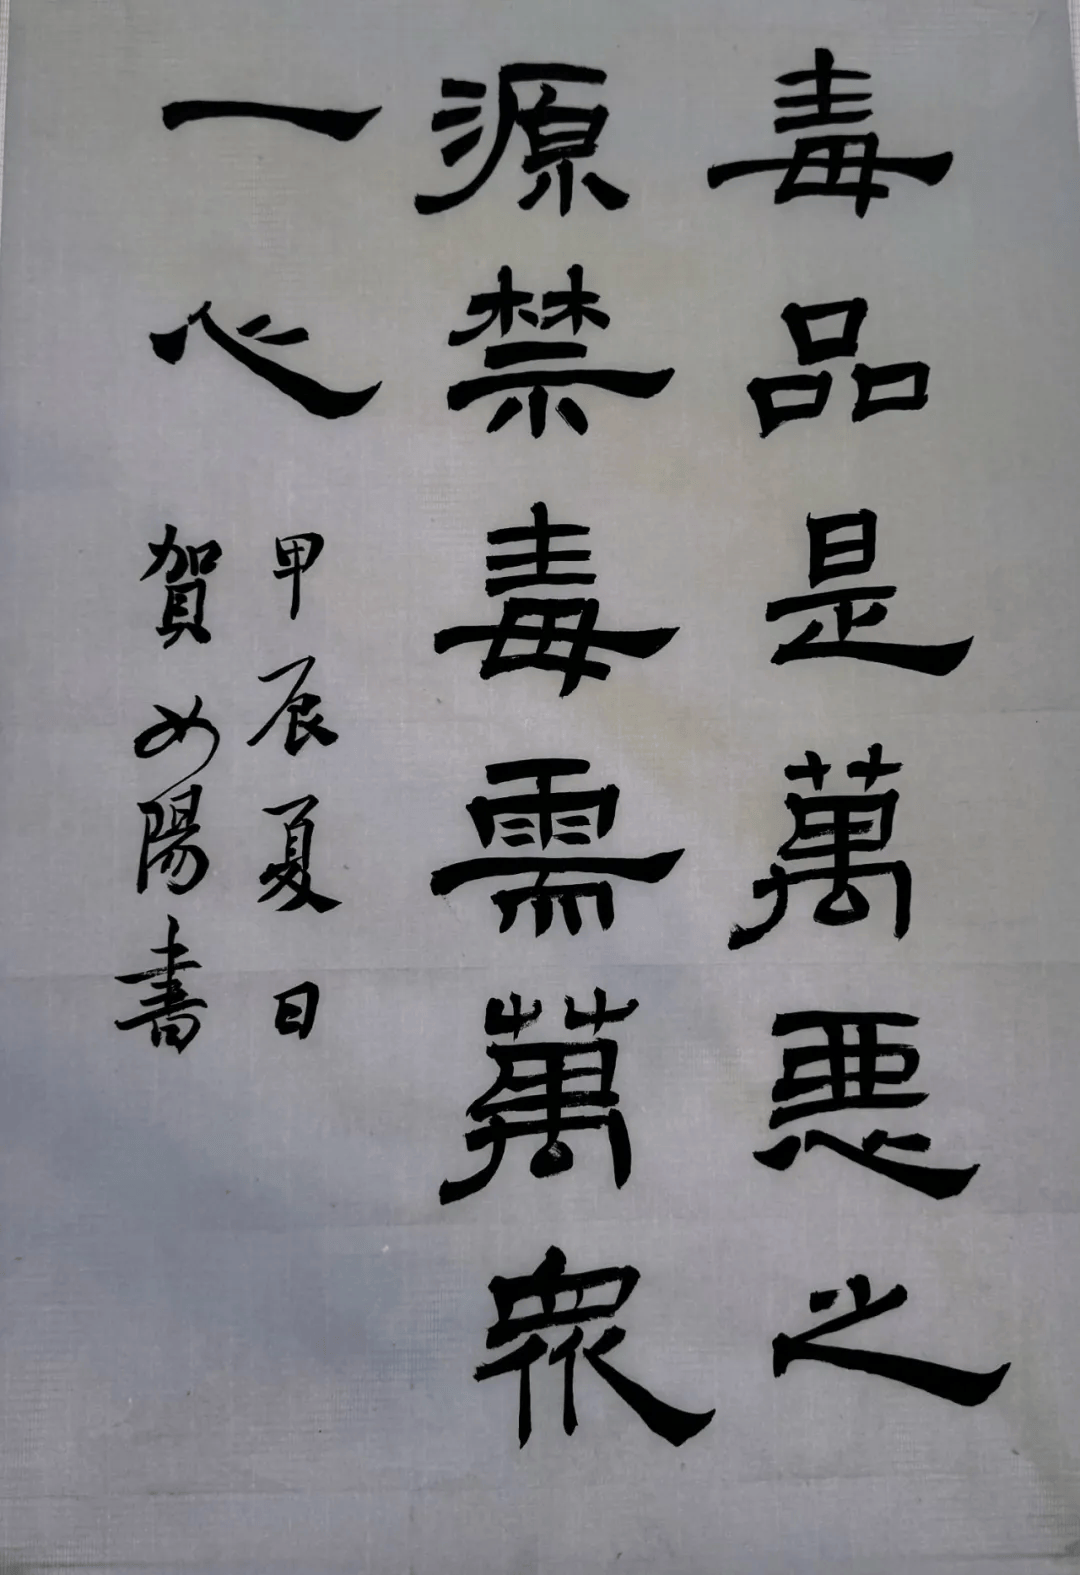 毒品是萬惡之
源禁毒需萬衆
一心
甲辰夏日
賀如陽書